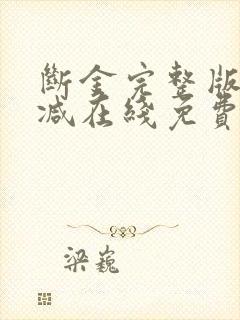 斷金完整版
减在綫免費
梁巍